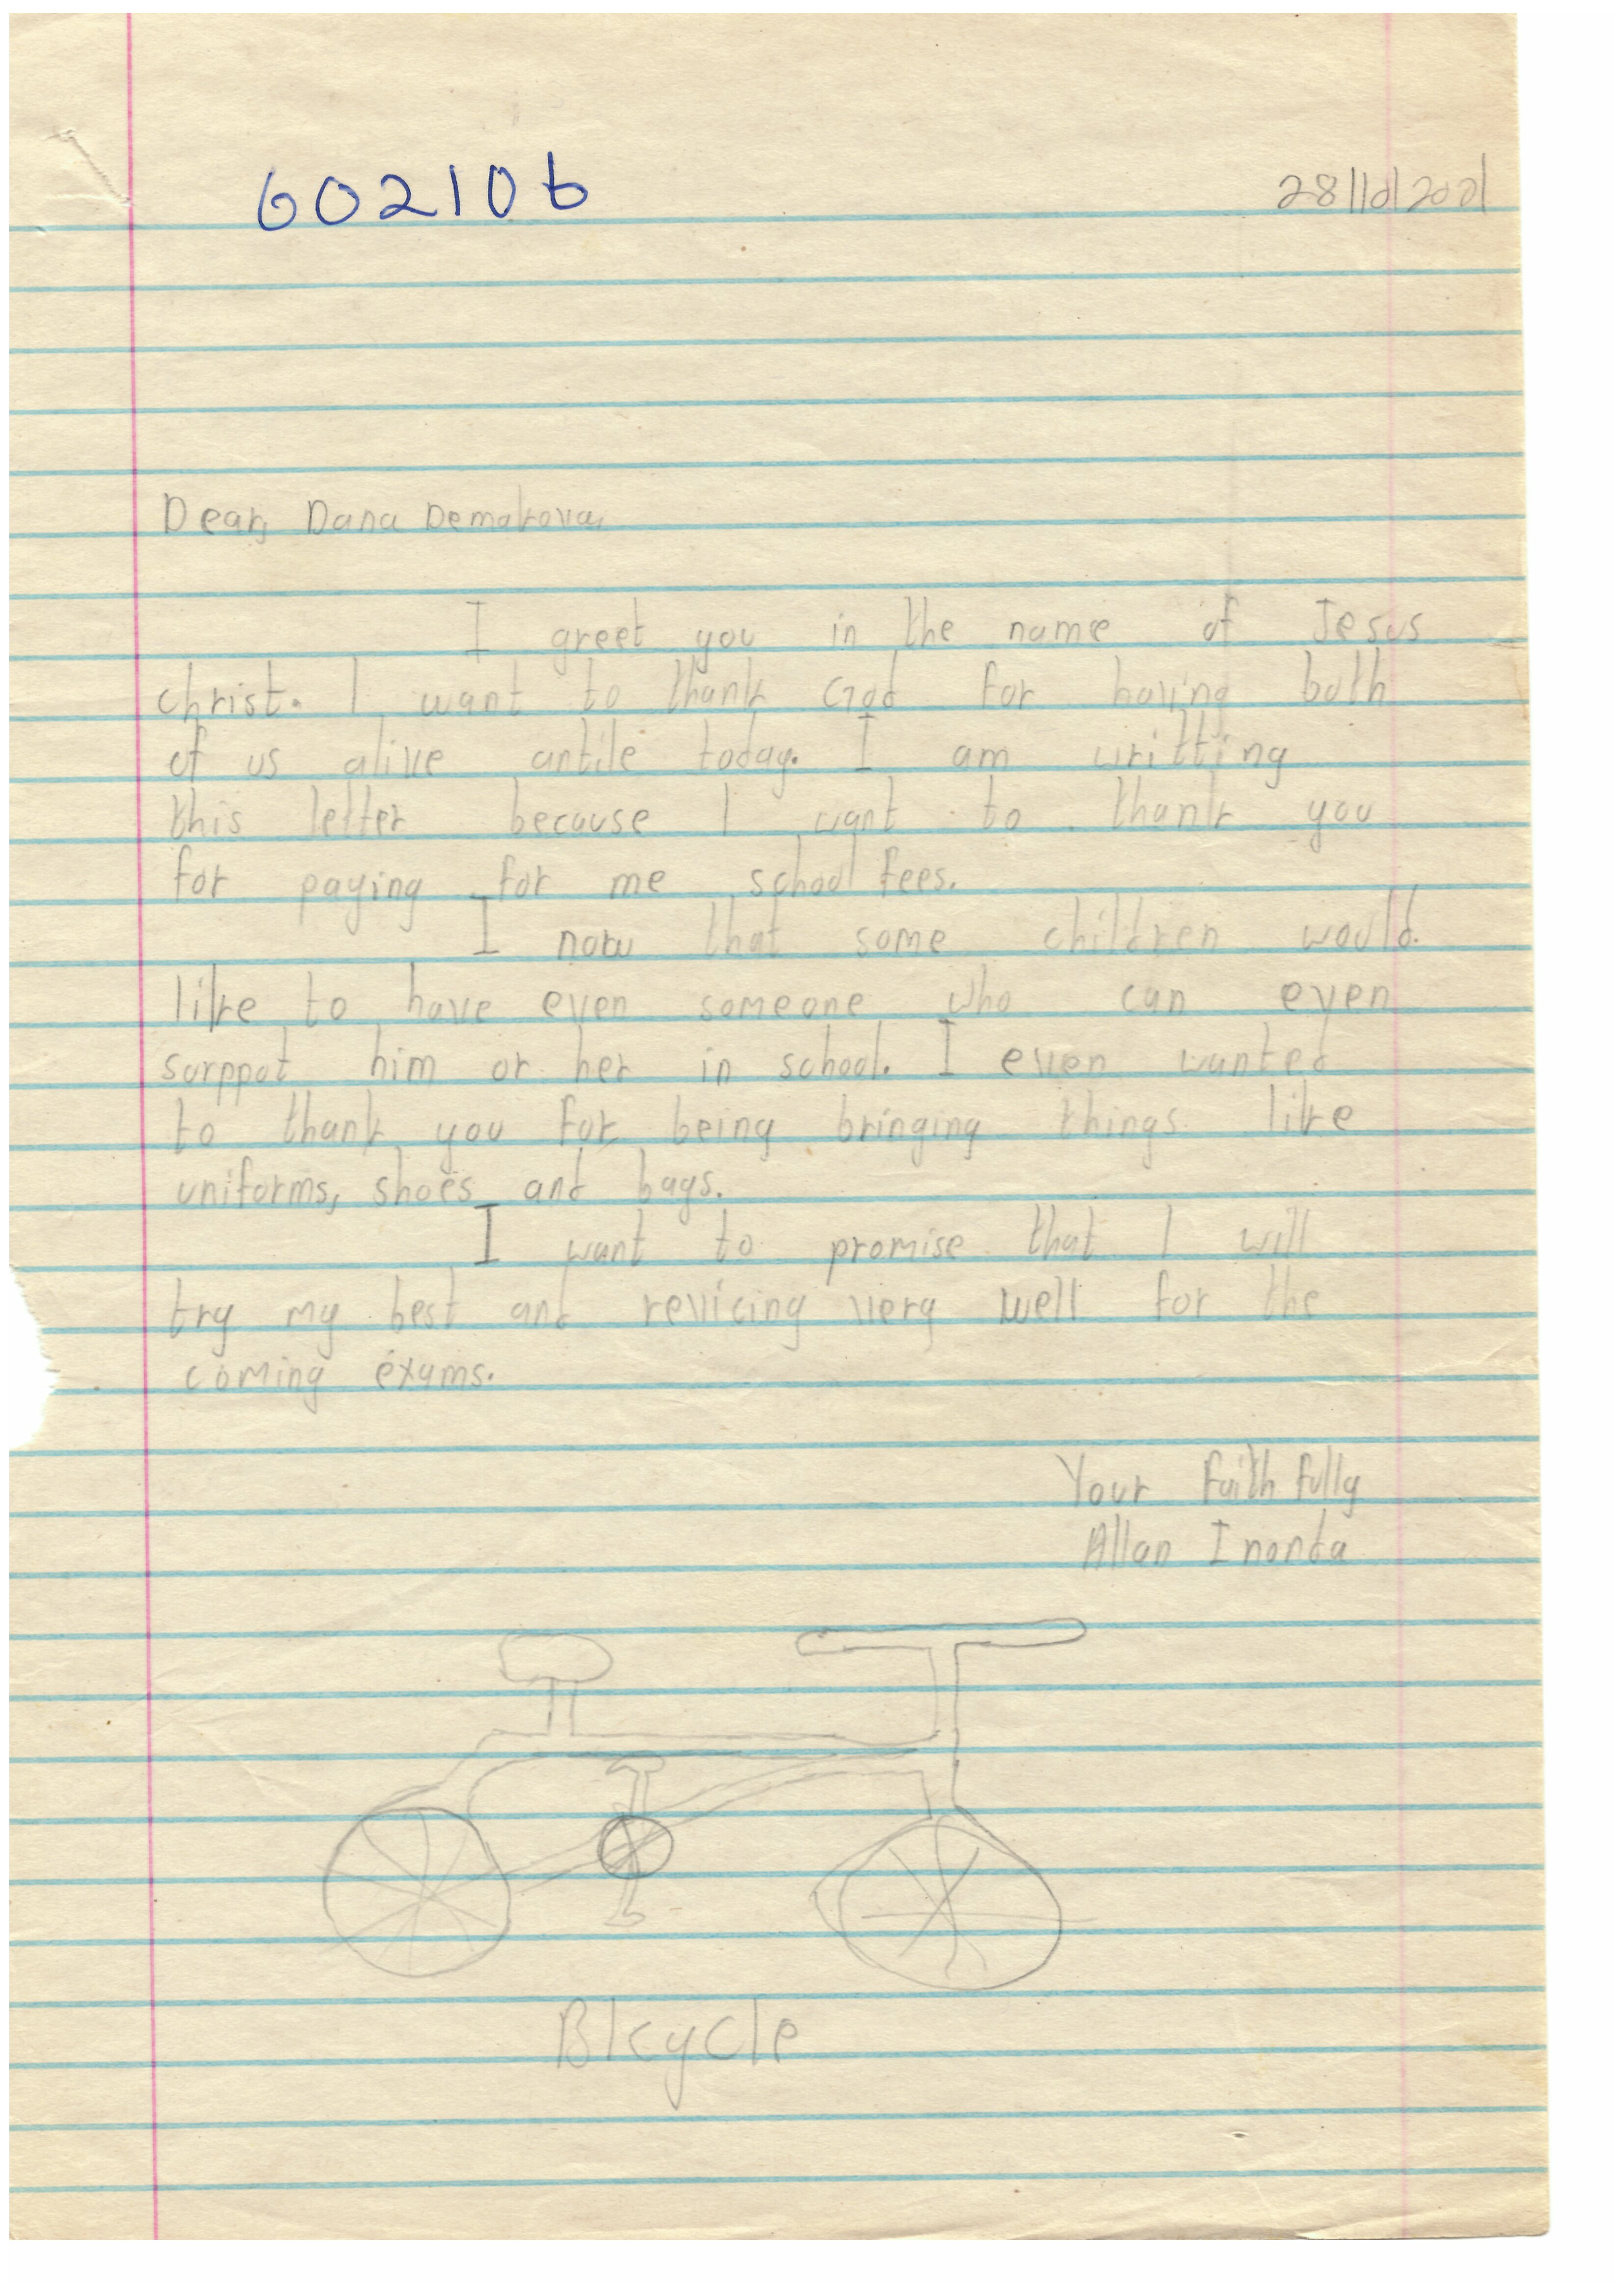 602106
28/10/2021
Dear, Dana Dematrova,
I greet you in the name of Jesus
christ. I want to thank God for having both
of us alive antile today. I am writting
this letter because I want to thank you
for paying for me school fees.
I now that some children would
like to have even someone who can even
sorppot him or her in school. I even wanted
to thank you for being bringing things like
uniforms, shoes and bags.
I want to promise that I will
try my best and revicing very well for the
coming exams.
Your Faith fully
Allan Inonda
BIcycle